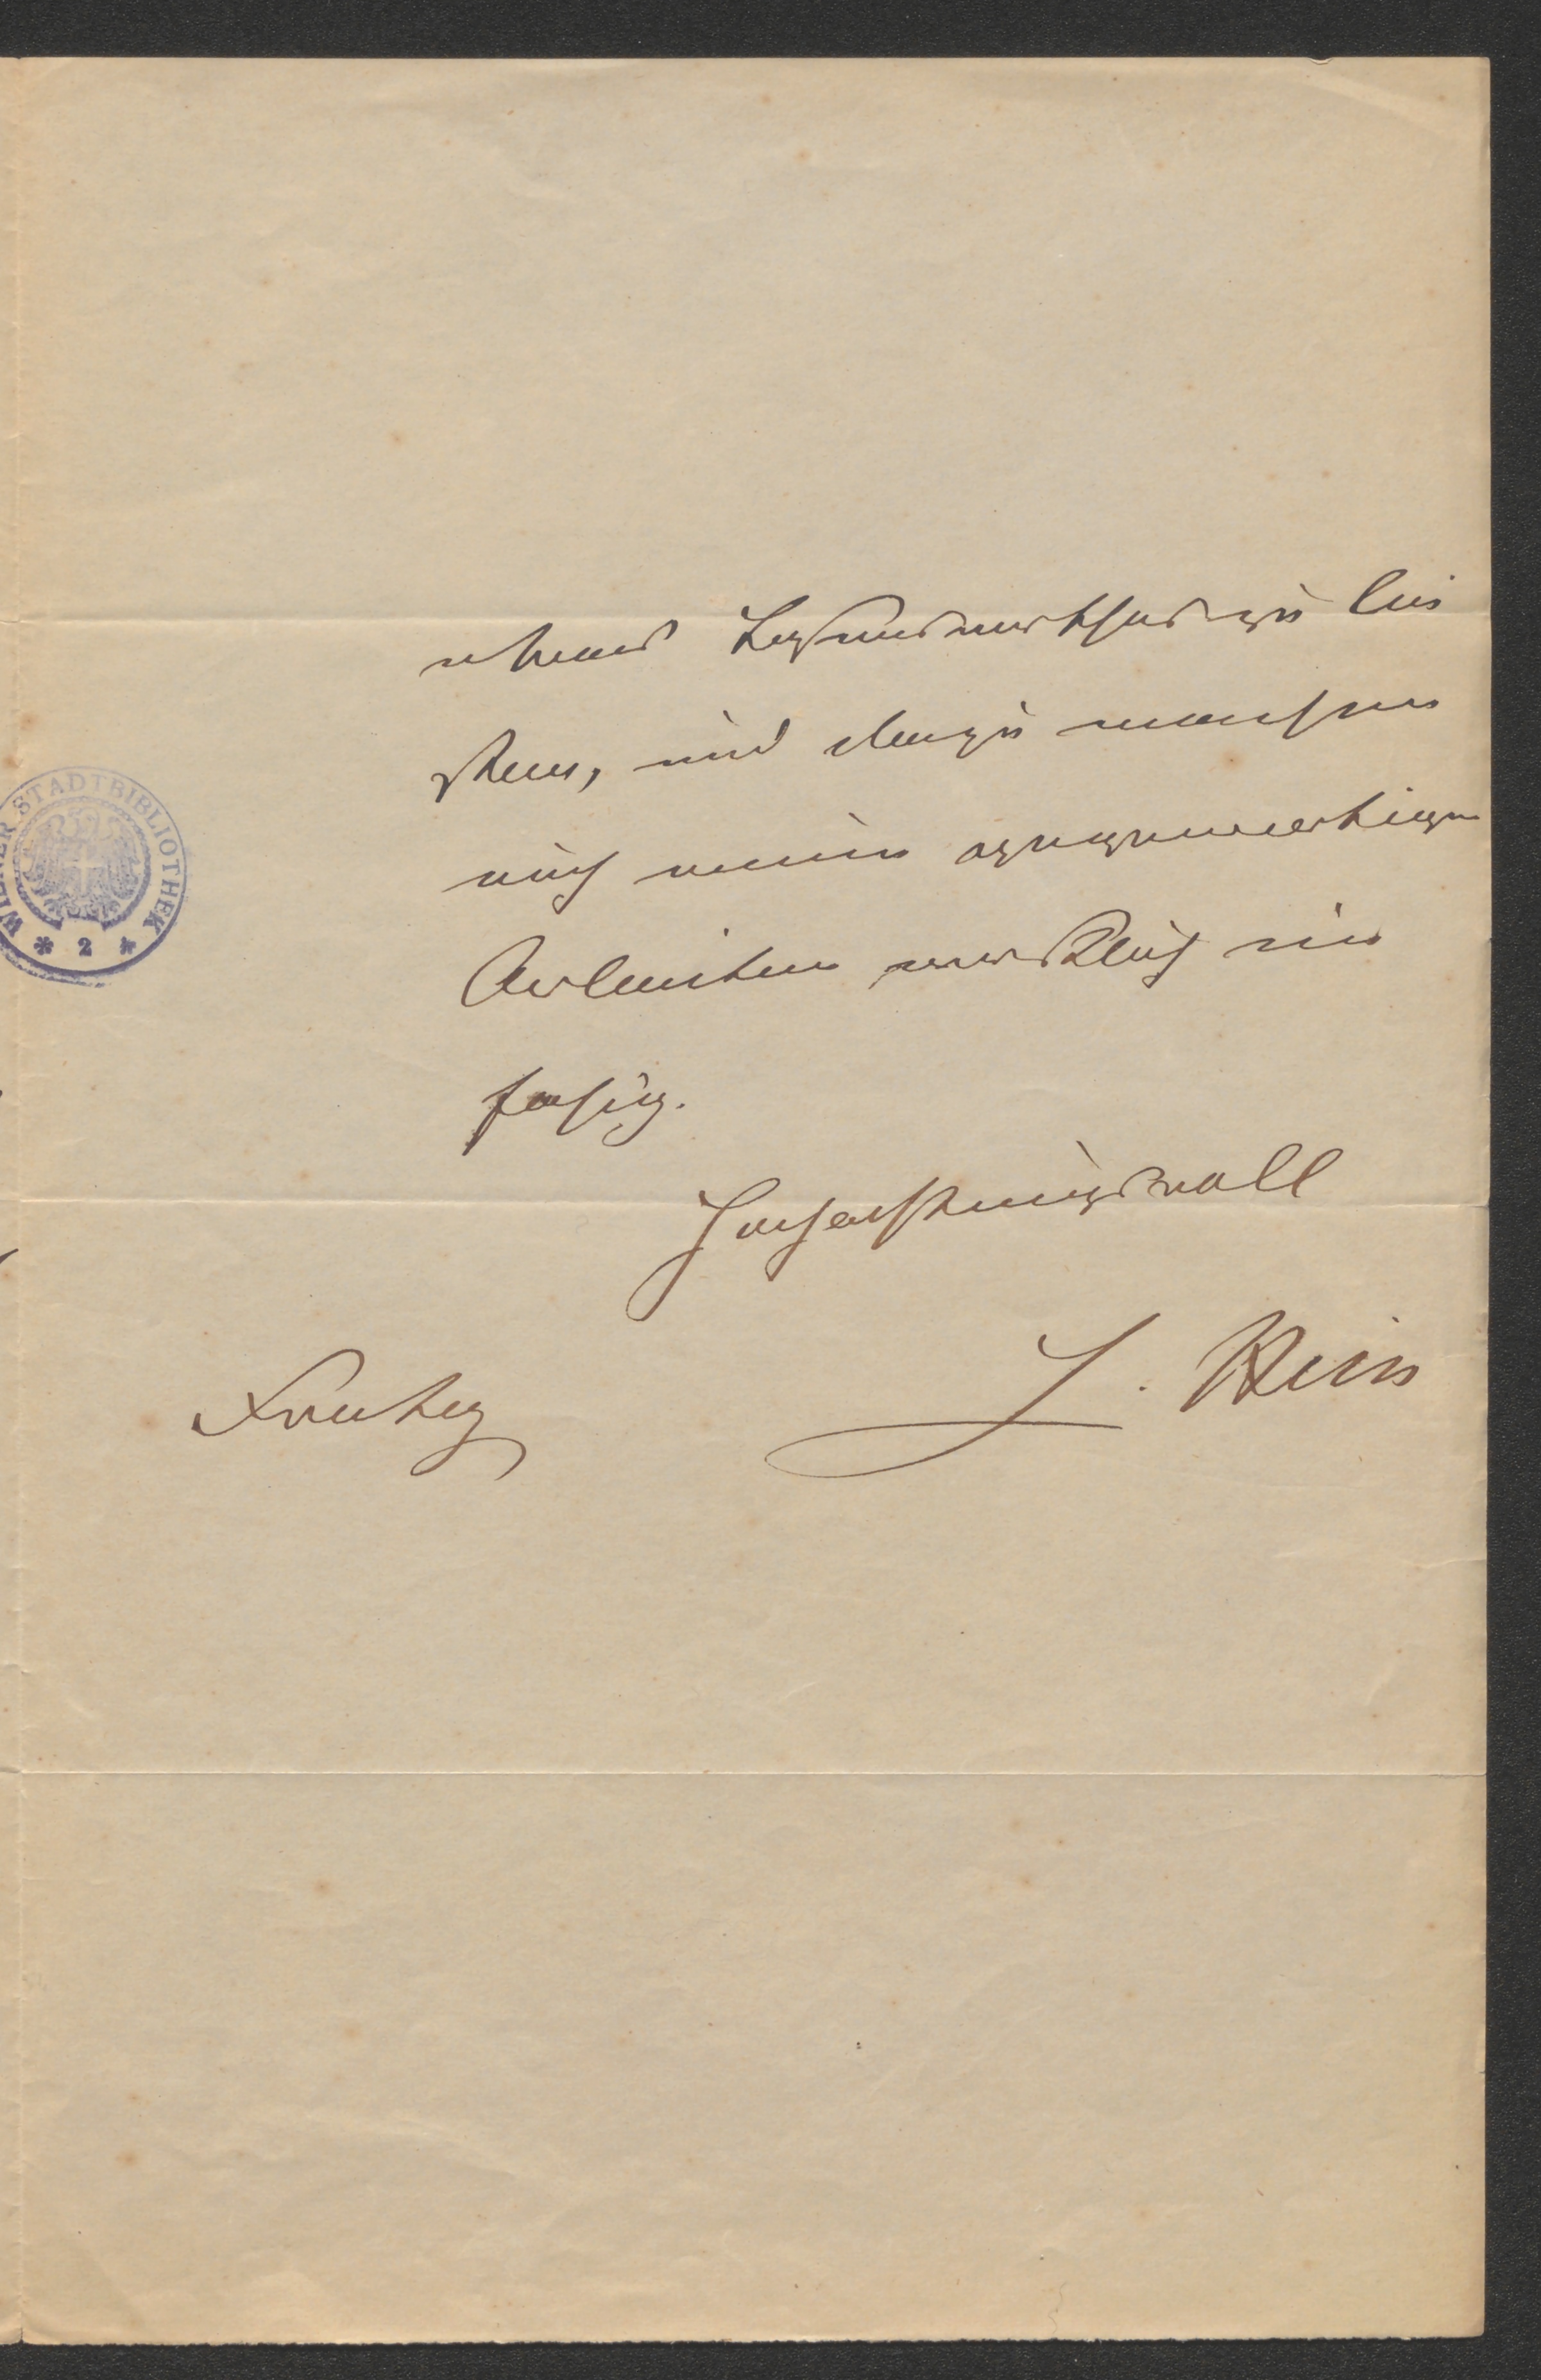 etwas Lesenswerthes zu lei
sten, und dazu machen
mich meine gegenwärtigen
Arbeiten wirklich un
fähig.
Hochachtungsvoll
Freitag
WIENER STADTBIBLIOTHEK
* 2 *